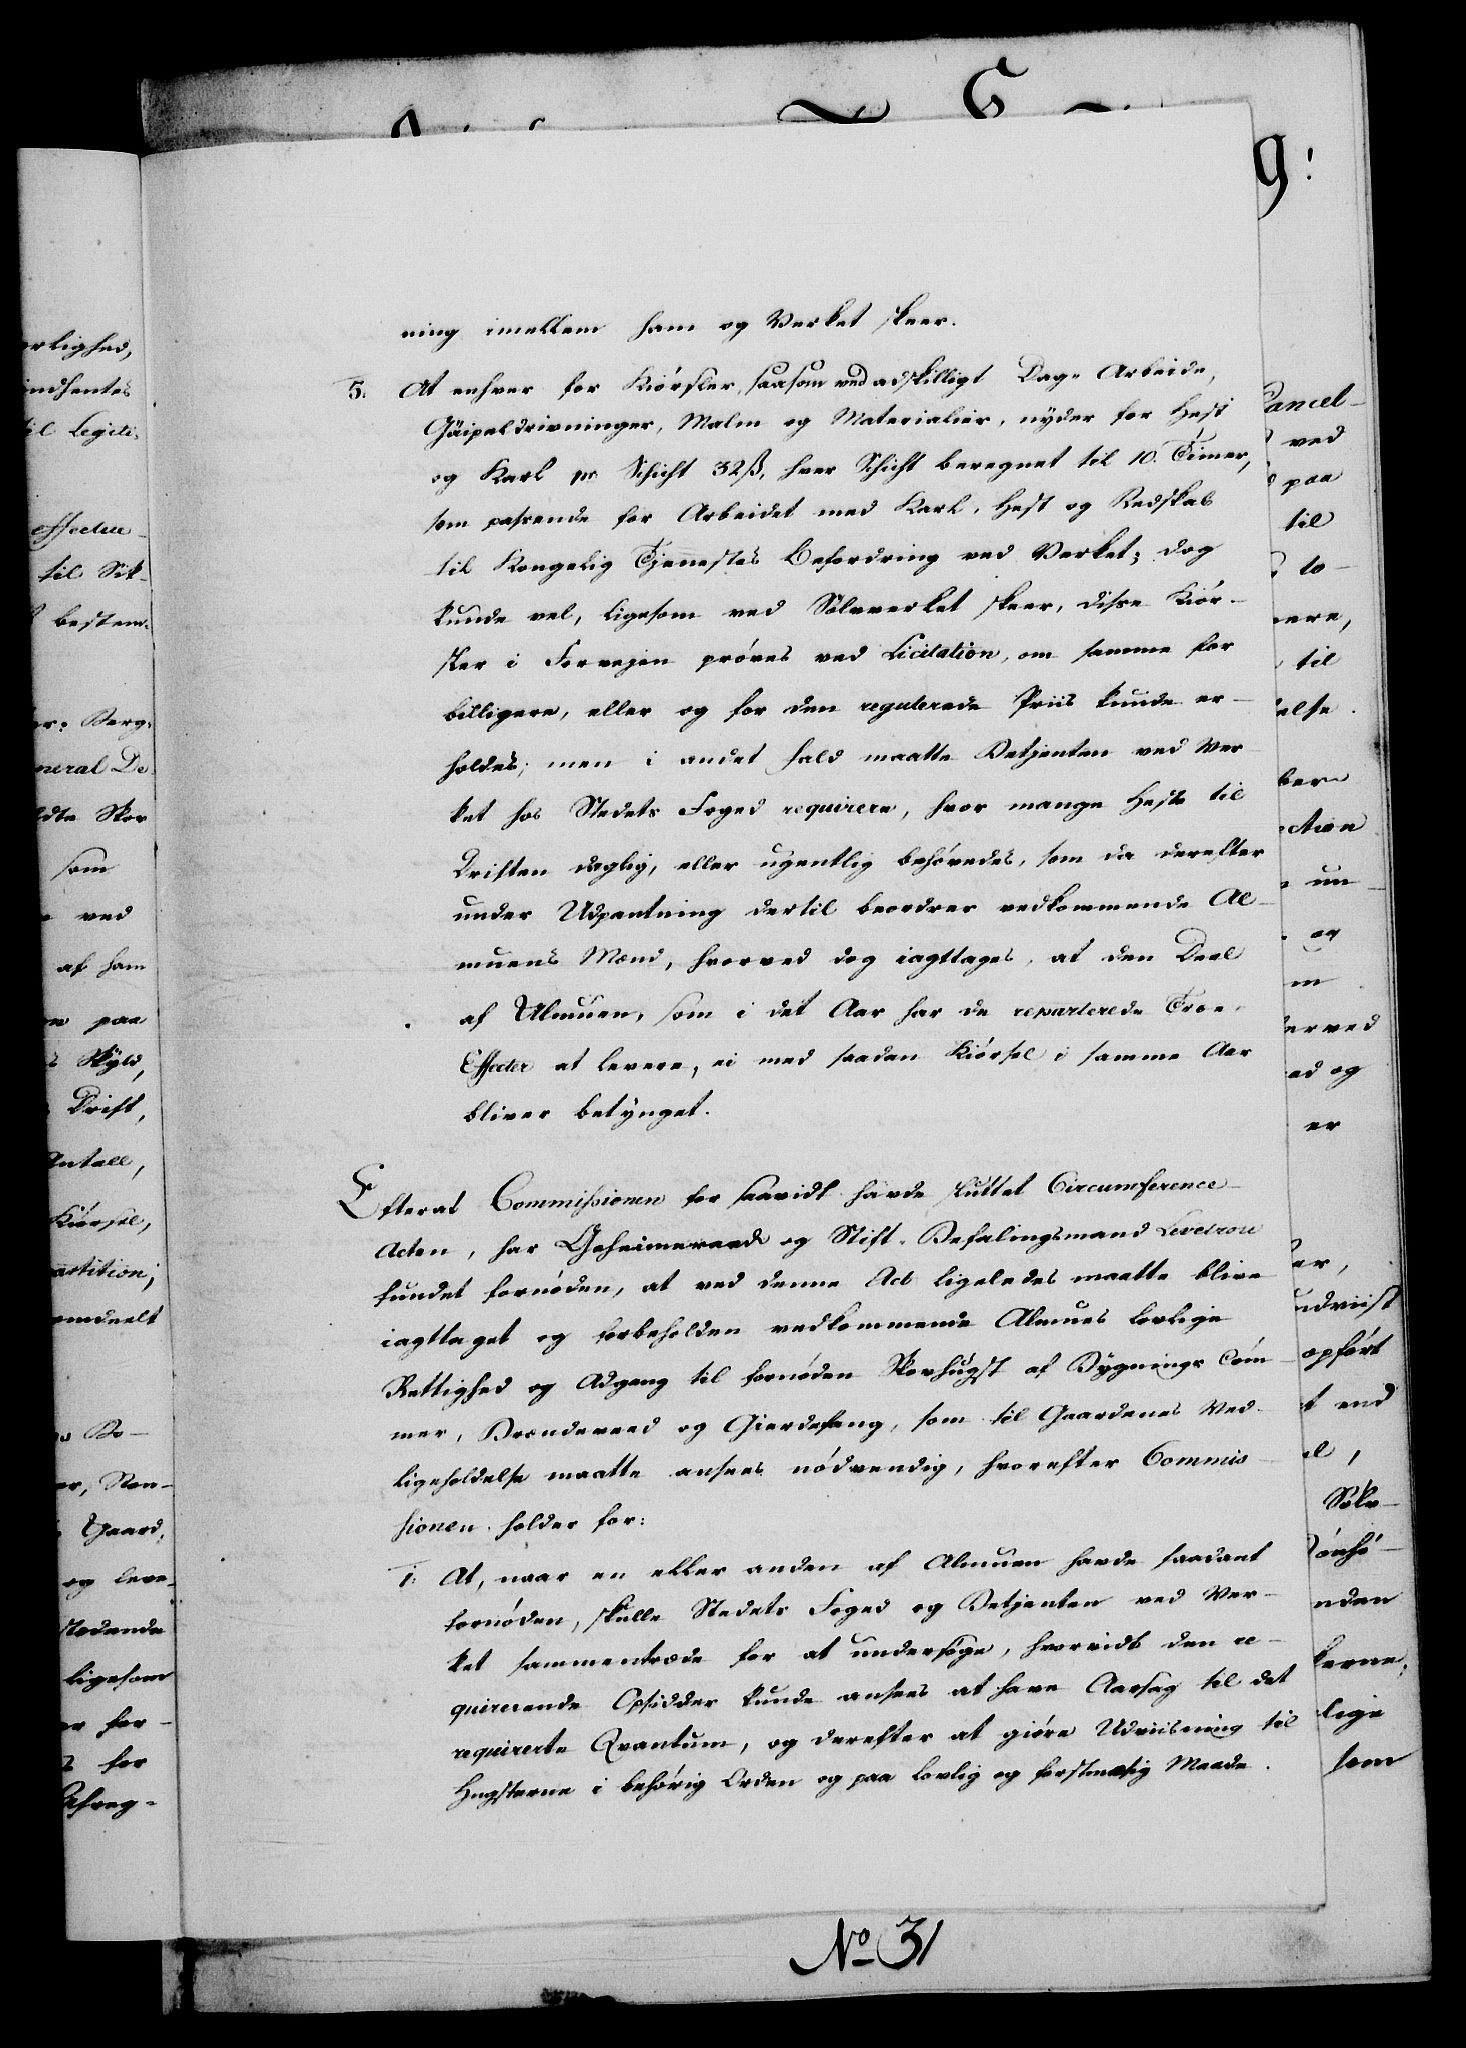 ning imellem ham og Verket skeer.
5. At enhver for Kiórsler, saasom ved adskilligt Dag-Arbeide,
Gäipeldrivninger, Malm og Materialier, nyder for Hest
og Karl pr Schicht 32ß, hver Schicht beregnet til 10. Timer,
som passende for Arbeidet med Karl, Hest og Redskab
til Kongelig Tjenestes Befordring ved Verket; dog
kunde vel, ligesom ved Sölvverket skeer, disse Kiór-
sler i Forvejen próves ved Licitation, om samme for
billigere, eller og for den regulerede Priis kunde er-
holdes; men i andet Fald maatte Betjenten ved Ver-
ket hos Stedets Foged requirere, hvor mange Heste til
Driften daglig, eller ugentlig behóvedes, som da derefter
under Udpantning dertil beordrer vedkommende Al-
muens Mænd, hvorved dog iagttages, at den Deel
af Almuen, som i det Aar har de reparterede Træe-
Effecter at levere, ei med saadan Kiórsel i samme Aar
bliver betynget.
Efterat Commissionen for saavidt havde sluttet Circumference-
Acten, har Geheimeraad og Stift-Befalingsmand Levetzou
fundet fornóden, at ved denne Act ligeledes maatte blive
iagttaget og forbeholden vedkommende Almues lovlige
Rettighed og Adgang til fornóden Skovhugst af Bygnings Tóm-
mer, Brændeveed og Gierdefang, som til Gaardenes Ved-
ligeholdelse maatte ansees nódvendig, hvorefter Commis-
sionen holder for:
1. At, naar en eller anden af Almuen havde saadant
fornóden, skulle Stedets Foged og Betjenten ved Ver-
ket sammentræde for at undersóge, hvorvidt den re-
quirerende Opsidder kunde ansees at have Aarsag til det
requirerte Qvantum, og derefter at gióre Udviisning til
Hugsterne i behórig Orden og paa lovlig og forstmæsig Maade.
No 31